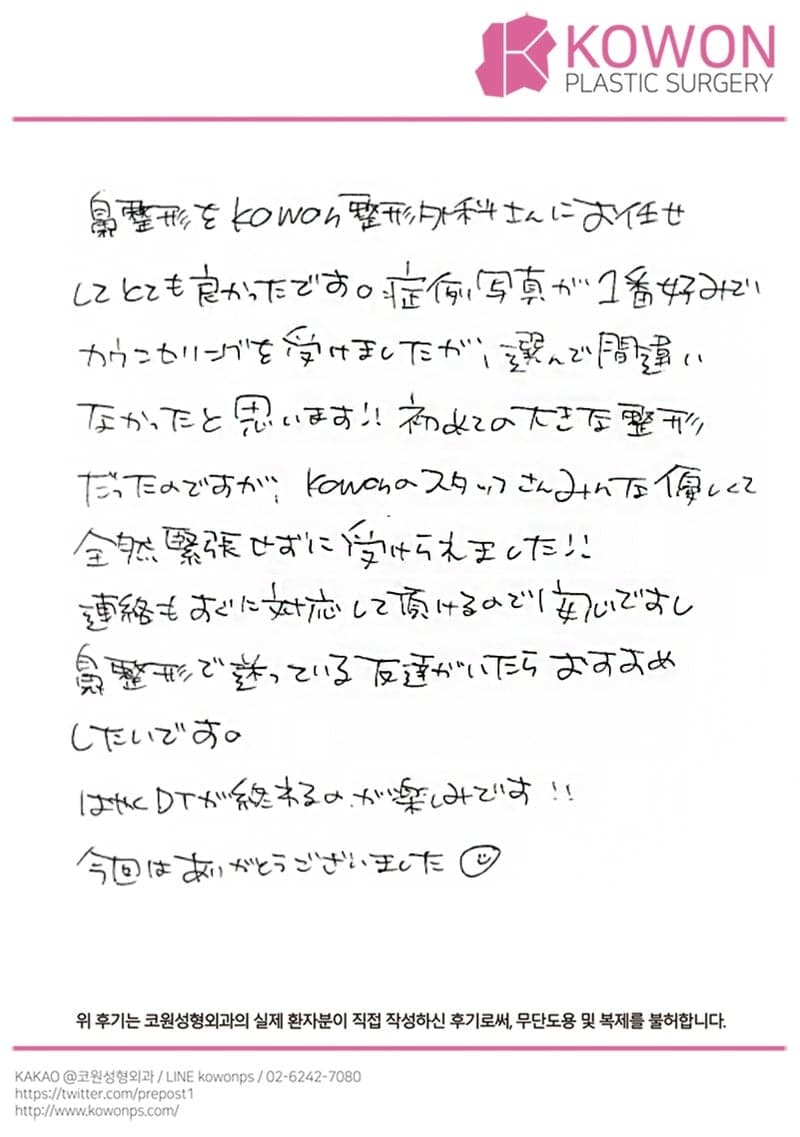 KOWON
PLASTIC SURGERY
鼻整形をkowon整形外科さんにお任せ
してとても良かったです。症例写真が1番好みで
カウンセリングを受けましたが、選んで間違い
なかったと思います!! 初めての大きな整形
だったのですが、kowonのスタッフさんみんな優しくて
全然緊張せずに受けられました!!
連絡もすぐに対応して頂けるので安心ですし
鼻整形で迷っている友達がいたらおすすめ
したいです。
はやくDTが終わるのが楽しみです!!
今回はありがとうございました
위 후기는 코원성형외과의 실제 환자분이 직접 작성하신 후기로써, 무단도용 및 복제를 불허합니다.
KAKAO @코원성형외과 / LINE kowonps / 02-6242-7080
https://twitter.com/prepost1
http://www.kowonps.com/